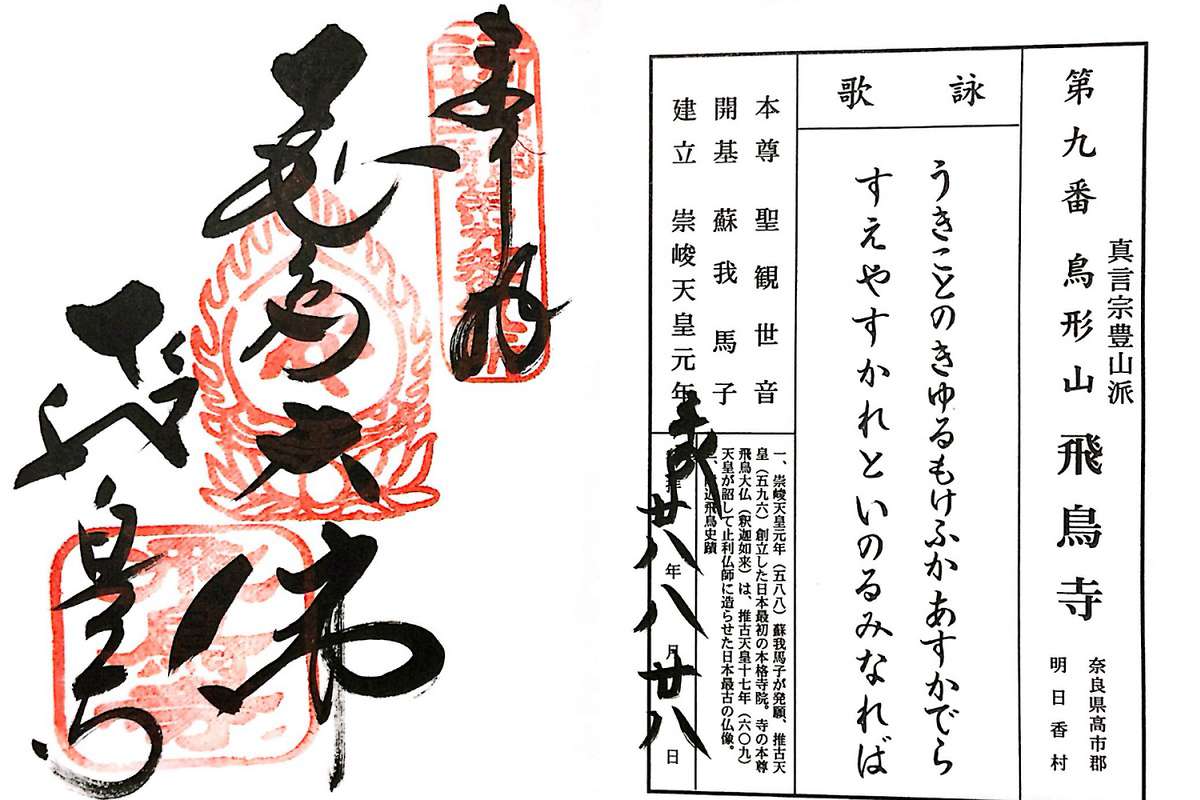 真言宗豊山派
第九番 鳥形山 飛鳥寺
奈良県高市郡
明日香村
詠歌
うきことのきゆるもけふかあすかでら
すえやすかれといのるみなれば
本尊 聖観世音
開基 蘇我馬子
建立 崇峻天皇元年
一、崇峻天皇元年（五八八）蘇我馬子が発願、推古天
皇（五九六）創立した日本最初の本格寺院。寺の本尊
飛鳥大仏（釈迦如来）は、推古天皇十七年（六〇九）
天皇が詔して止利仏師に造らせた日本最古の仏像。
近飛鳥史蹟
拝 廿八年 八月 廿八日
奉拝
飛鳥大佛
飛鳥寺